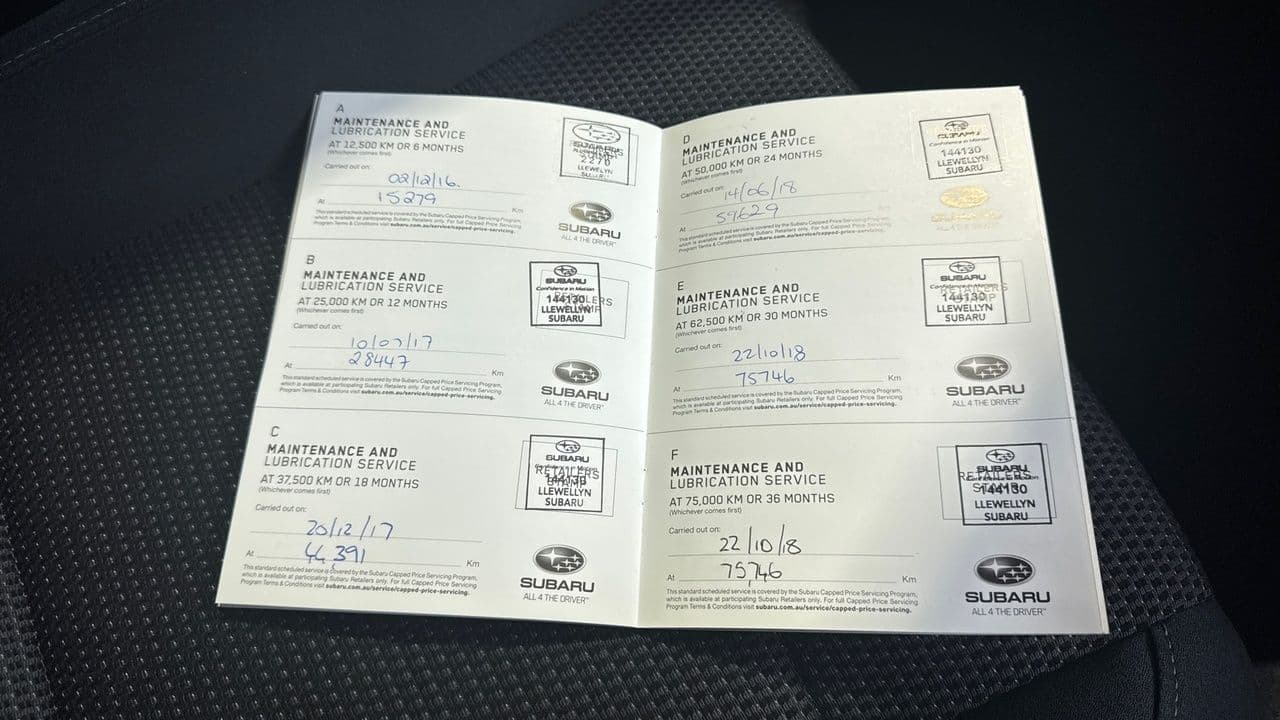 A
MAINTENANCE AND
LUBRICATION SERVICE
AT 12,500 KM OR 6 MONTHS
(Whichever comes first)
Carried out on:
02/12/16.
At 15279 Km
This standard scheduled service is covered by the Subaru Capped Price Servicing Program,
which is available at participating Subaru Retailers only. For full Capped Price Servicing
Program Terms & Conditions visit subaru.com.au/service/capped-price-servicing.
LLEWELYN
SUBARU
ALL 4 THE DRIVER™
B
MAINTENANCE AND
LUBRICATION SERVICE
AT 25,000 KM OR 12 MONTHS
(Whichever comes first)
Carried out on:
10/07/17
At 28447 Km
This standard scheduled service is covered by the Subaru Capped Price Servicing Program,
which is available at participating Subaru Retailers only. For full Capped Price Servicing
Program Terms & Conditions visit subaru.com.au/service/capped-price-servicing.
SUBARU
Confidence in Motion
RETAILERS
STAMP
144130
LLEWELLYN
SUBARU
SUBARU
ALL 4 THE DRIVER™
C
MAINTENANCE AND
LUBRICATION SERVICE
AT 37,500 KM OR 18 MONTHS
(Whichever comes first)
Carried out on:
20/12/17
At 44,391 Km
This standard scheduled service is covered by the Subaru Capped Price Servicing Program,
which is available at participating Subaru Retailers only. For full Capped Price Servicing
Program Terms & Conditions visit subaru.com.au/service/capped-price-servicing.
SUBARU
RETAILERS
STAMP
144130
LLEWELLYN
SUBARU
SUBARU
ALL 4 THE DRIVER™
D
MAINTENANCE AND
LUBRICATION SERVICE
AT 50,000 KM OR 24 MONTHS
(Whichever comes first)
Carried out on:
14/06/18
At 59629
This standard scheduled service is covered by the Subaru Capped Price Servicing Program,
which is available at participating Subaru Retailers only. For full Capped Price Servicing
Program Terms & Conditions visit subaru.com.au/service/capped-price-servicing.
SUBARU
Confidence in Motion
144130
LLEWELLYN
SUBARU
E
MAINTENANCE AND
LUBRICATION SERVICE
AT 62,500 KM OR 30 MONTHS
(Whichever comes first)
Carried out on:
22/10/18
At 75746 Km
This standard scheduled service is covered by the Subaru Capped Price Servicing Program,
which is available at participating Subaru Retailers only. For full Capped Price Servicing
Program Terms & Conditions visit subaru.com.au/service/capped-price-servicing.
SUBARU
Confidence in Motion
RETAILERS
STAMP
144130
LLEWELLYN
SUBARU
SUBARU
ALL 4 THE DRIVER™
F
MAINTENANCE AND
LUBRICATION SERVICE
AT 75,000 KM OR 36 MONTHS
(Whichever comes first)
Carried out on:
22/10/18
At 75,746 Km
This standard scheduled service is covered by the Subaru Capped Price Servicing Program,
which is available at participating Subaru Retailers only. For full Capped Price Servicing
Program Terms & Conditions visit subaru.com.au/service/capped-price-servicing.
SUBARU
RETAILERS
STAMP
144130
LLEWELLYN
SUBARU
SUBARU
ALL 4 THE DRIVER™